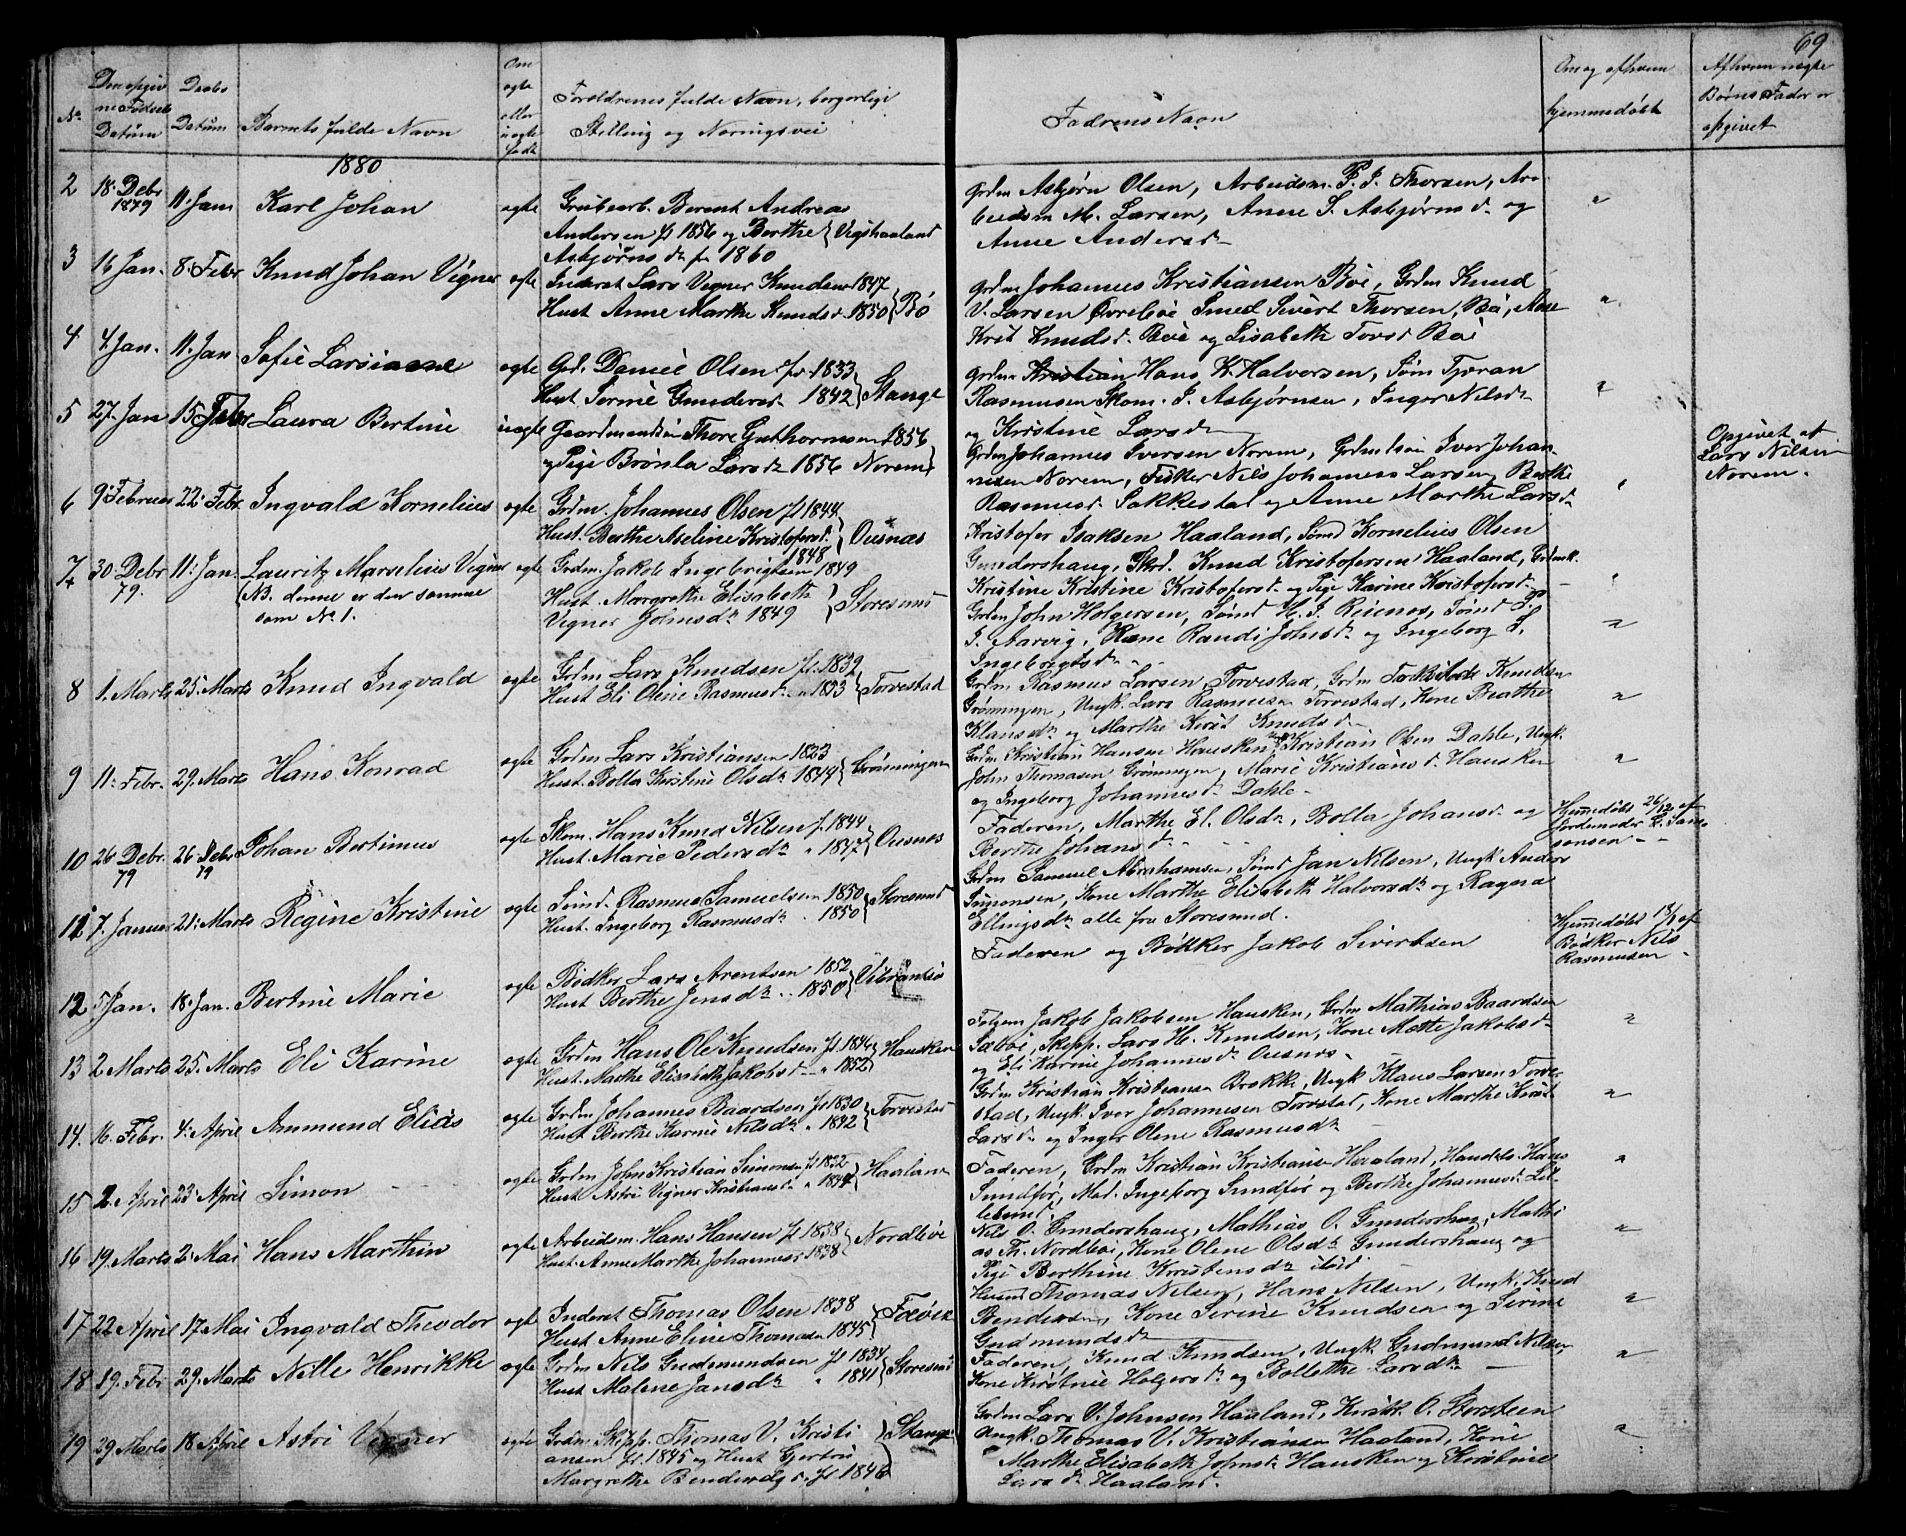 69
No
Den opgiv
ne Fødsels
Datum
Daabs
Datum
Barnets fulde Navn
Om
ægte
eller
uægte
født
Forældrenes fulde Navn, borgerlige
Stilling og Næringsvei
Fadrenes Navn
Om og af hvem
hjemmedøbt
Af hvem uægte
Børns Fader er
opgivet
1880
2 18. Debr 1879 11. Jan Karl Johan ægte Grubearb. Berent Andreas
Andersen f. 1856 og Berthe Vigshaaland
Asbjørns dr f. 1860
Grdm Asbjørn Olsen, Arbeidsm. P. J. Thorsen, Ar-
beidsm M. Larsen, Anne S. Asbjørnsd. og
Anne Andersd.
3 16 Jan. 8. Febr Knud Johan Vigner ægte Inderst Lars Vigner Knudsen 1847
Hust Anne Marthe Knudsd. 1850 Bø
Grdm Johannes Kristiansen Bøe, Grdm Knud
V. Larsen Øvrebøe Smed Sivert Thorsen, Bø, Ane
Krist Knudsd. Bøe og Lisabeth Tovsd Bøe
4 4 Jan. 11. Jan Sofie Larsianne ægte Grd. Daniel Olsen f. 1833
Hust. Serine Gundersd. 1842 Stange
Grdm Kristian Hans K. Halvorsen, Søn Tjøran
Rasmusen Skom. S. Asbjørnsen, Inger Nilsd.
og Kristine Larsd.
5 27. Jan 15 Febr Laura Bertine uægte Gaardmandssøn Thore Guthormsen 1856
og Pige Brønla Larsd. 1856 Norem
Grdm Johannes Iversen Norem, Grdmandssøn Iver Johan-
nesen Norem, Fisker Nils Johannes Larsen, Berthe
Rasmusd. Sakkestad og Anne Marthe Larsd.
Opgivet af
Lars Nilsen
Norem.
6 9. Februar 22. Febr. Ingvald Kornelius ægte Grdm. Johannes Olsen f. 1844
Hust. Berthe Aseline Kristofersd. 1848 Ousnæs
Kristofer Isaksen Haaland, Sømd Kornelius Olsen
Gundershaug, Skrd. Knud Kristofersen Haaland, Grdmk.
Kristine Kristine Kristofersd. og Pige Karine Kristofersd.
7 30 Debr 79. 11. Jan. Lauritz Marselius Vigner ægte Grdm. Jakob Ingebrigtsen 1849
(NB. denne er den samme
som No 1.
Hust. Margrethe Elisabeth
Vigner Johnsdr 1849 Storesund
Grdm John Holgersen, Sømd H. J. Risenes, Sømd P.
J. Aarvig, Kone Randi Johnsd. og Ingeborg S.
Ingebrigtsd.
8 1. Marts 25. Marts Knud Ingvald ægte Grdm Lars Knudsen f. 1839
Hust Eli Olene Rasmusd. 1833 Torvestad
Grdm Rasmus Larsen Torvestad, Grdm Torkild Knudsen
Grønningen, Ungk. Lars Rasmusen Torvestad, Kone Beathe
Klausdr og Marthe Krist Knudsd.
9 11. Febr. 29. Marts Hans Konrad ægte Grdm Lars Kristiansen 1833
Hust. Bolla Kristine Olsdr 1844 Grønningen
Grdm Kristian Hansen Hausken, Ungk. Kristian Olsen Dahle, Ungk.
John Thomasen Grønningen, Marie Kristiansd. Hausken
og Ingeborg Johannesd. Dahle.
10 26 Debr. 79 26 Debr 79 Johan Bertinus ægte Skom. Hans Knud Nilsen f. 1844
Hust Marie Pedersdr 1847 Ousnæs
Faderen, Marthe El. Olsdr, Bolla Johansd. og
Berthe Johansd.
Hjemmedøbt 26/12 af
Jordemoder L. Sam-
sonsen
11 7. Januar 21. Marts Regine Kristine ægte Sømd. Rasmus Samuelsen 1850
Hust. Ingeborg Rasmusdr 1850 Storesund
Grdm Samuel Abrahamsen, Sømd Jan Nilsen, Ungk Anders
Simonsen, Kone Marthe Elisabeth Halvorsdr og Ragna
Ellingsdr alle fra Storesund.
12 5 Jan. 18. Jan. Bertine Marie ægte Bødker Lars Arentsen 1852
Hust Berthe Jensdr 1850
Faderen og Bødker Jakob Sivertsen
Hjemmedøbt 18/1 af
Bødker Nils
Rasmusen
13 2 Marts 25. Marts Eli Karine ægte Grdm Hans Ole Knudsen f. 1846
Hust. Marthe Elisabeth Jakobsd. 1852 Hausken
Folgem Jakob Jakobsen Hausken, Grdm Mathias Baardsen
Sæbøe, Skipp. Lars H. Knudsen, Kone Mætte Jakobsd.
og Eli Karine Johannesd. Ousnæs
14. 16. Febr. 4. April Ammund Elias ægte Grdm Johannes Baardsen f. 1830
Hust Berthe Karine Nilsdr 1832 Torvestad
Grdm Kristian Kristiansen Brekke, Ungk Klaus Larsen Torve-
stad, Ungk. Iver Johannesen Torvestad, Kone Marthe Krist.
Larsd. og Inger Olene Rasmusdr
15 2 April 23 April Simon ægte Grdm John Kristian Simonsen f. 1832
Hust Astri Vigner Kristiansd. 1844 Haaland
Faderen, Grdm Kristian Kristiansen Haaland, Handels. Hans
Sundfør, Mad. Ingeborg Sundfør og Berthe Johannesd. Lil-
lesund.
16 19. Marts 2. Mai Hans Marthin ægte Arbeidsm. Hans Hansen f. 1838
Hust. Anne Marthe Johannesd. 1838 Nordbøe
Nils O. Gundershaug, Mathias O. Gundershaug, Mathi
as Th. Nordbøe, Kone Olene Olsdr Gundershaug og
Pige Berthine Kristensdr ibid
17 22 April 17. Mai Ingvald Theodor ægte Inderst Thomas Olsen 1838
Hust Anne Eline Thomasen 1845 Fæøen
Husmd Thomas Nilsen, Hans Nilsen, Ungk. Knud
Bendersen, Kone Serine Knudsen og Serine
Gudmundsd.
18 19. Febr 29. Marts Nille Henrikke ægte Grdm Nils Gudmundsen f. 1834
Hust Malene Jansdr 1841 Storesund
Faderen, Knud Knudsen, Ungk Gudmund Nilsen
Kone Kirstine Holgersd. og Bollethe Larsdr
19 29. Marts 18 April Astri Vigner ægte Grdm. Skipp. Thomas V. Kristi
ansen f. 1845 og Hust Gjertrui
Margrethe f. 1846 Stange
Grdm Lars V. Johnsen Haaland, Kirstk. O. Storsteen
Ungk. Thomas V. Kristiansen Haaland, Kone
Marthe Elisabeth Johnsdr Hausken og Kirstine
Larsdr Haaland.